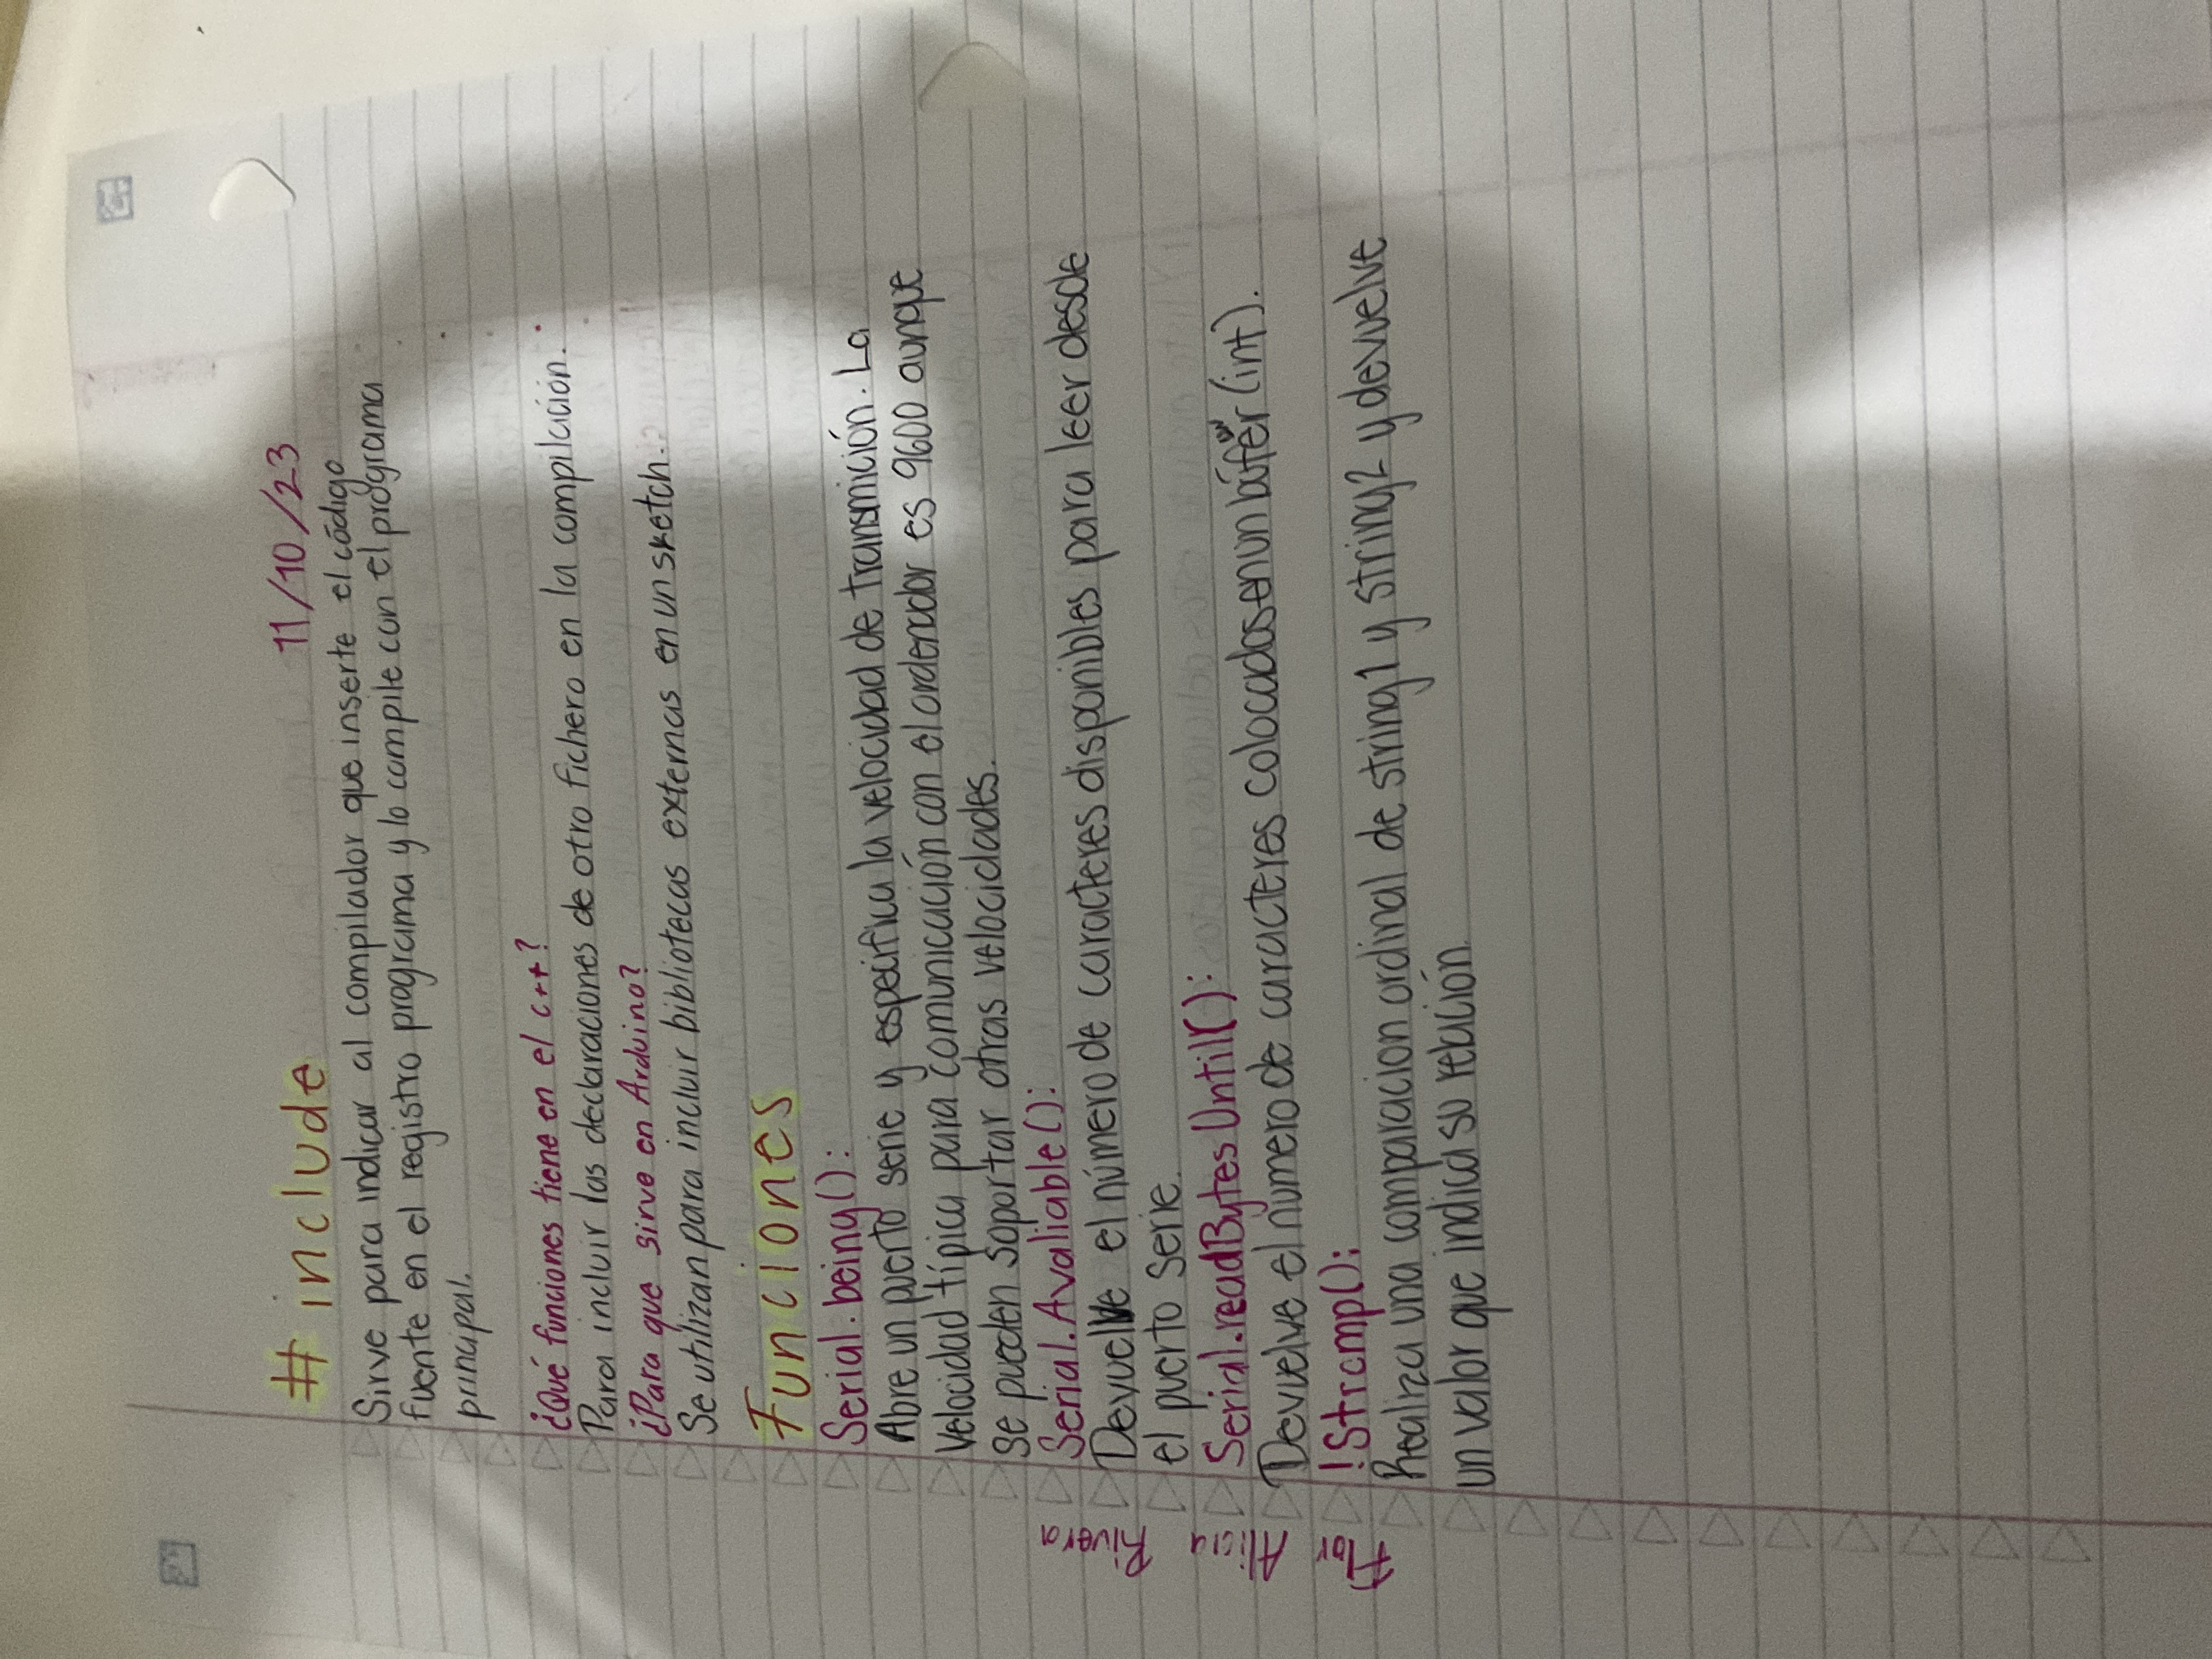 # include 11/10/23
Sirve para indicar al compilador que inserte el código
fuente en el registro programa y lo compile con el programa
principal.
¿Qué funciones tiene en el c++?
Para incluir las declaraciones de otro fichero en la compilación.
¿Para que sirve en Arduino?
Se utilizan para incluir bibliotecas externas en un sketch.
Funciones
Serial.being():
Abre un puerto serie y especifica la velocidad de transmición. La
velocidad típica para comunicación con el ordenador es 9600 aunque
se pueden soportar otras velocidades.
Serial.Avaliable():
Devuelve el número de caracteres disponibles para leer desde
el puerto serie.
Serial.readBytesUntil():
Devuelve el numero de caracteres colocados en un búfer (int).
!Strcmp():
Realiza una comparacion ordinal de string1 y string2 y devuelve
un valor que indica su relación.
Flor
Alicia
Rivera